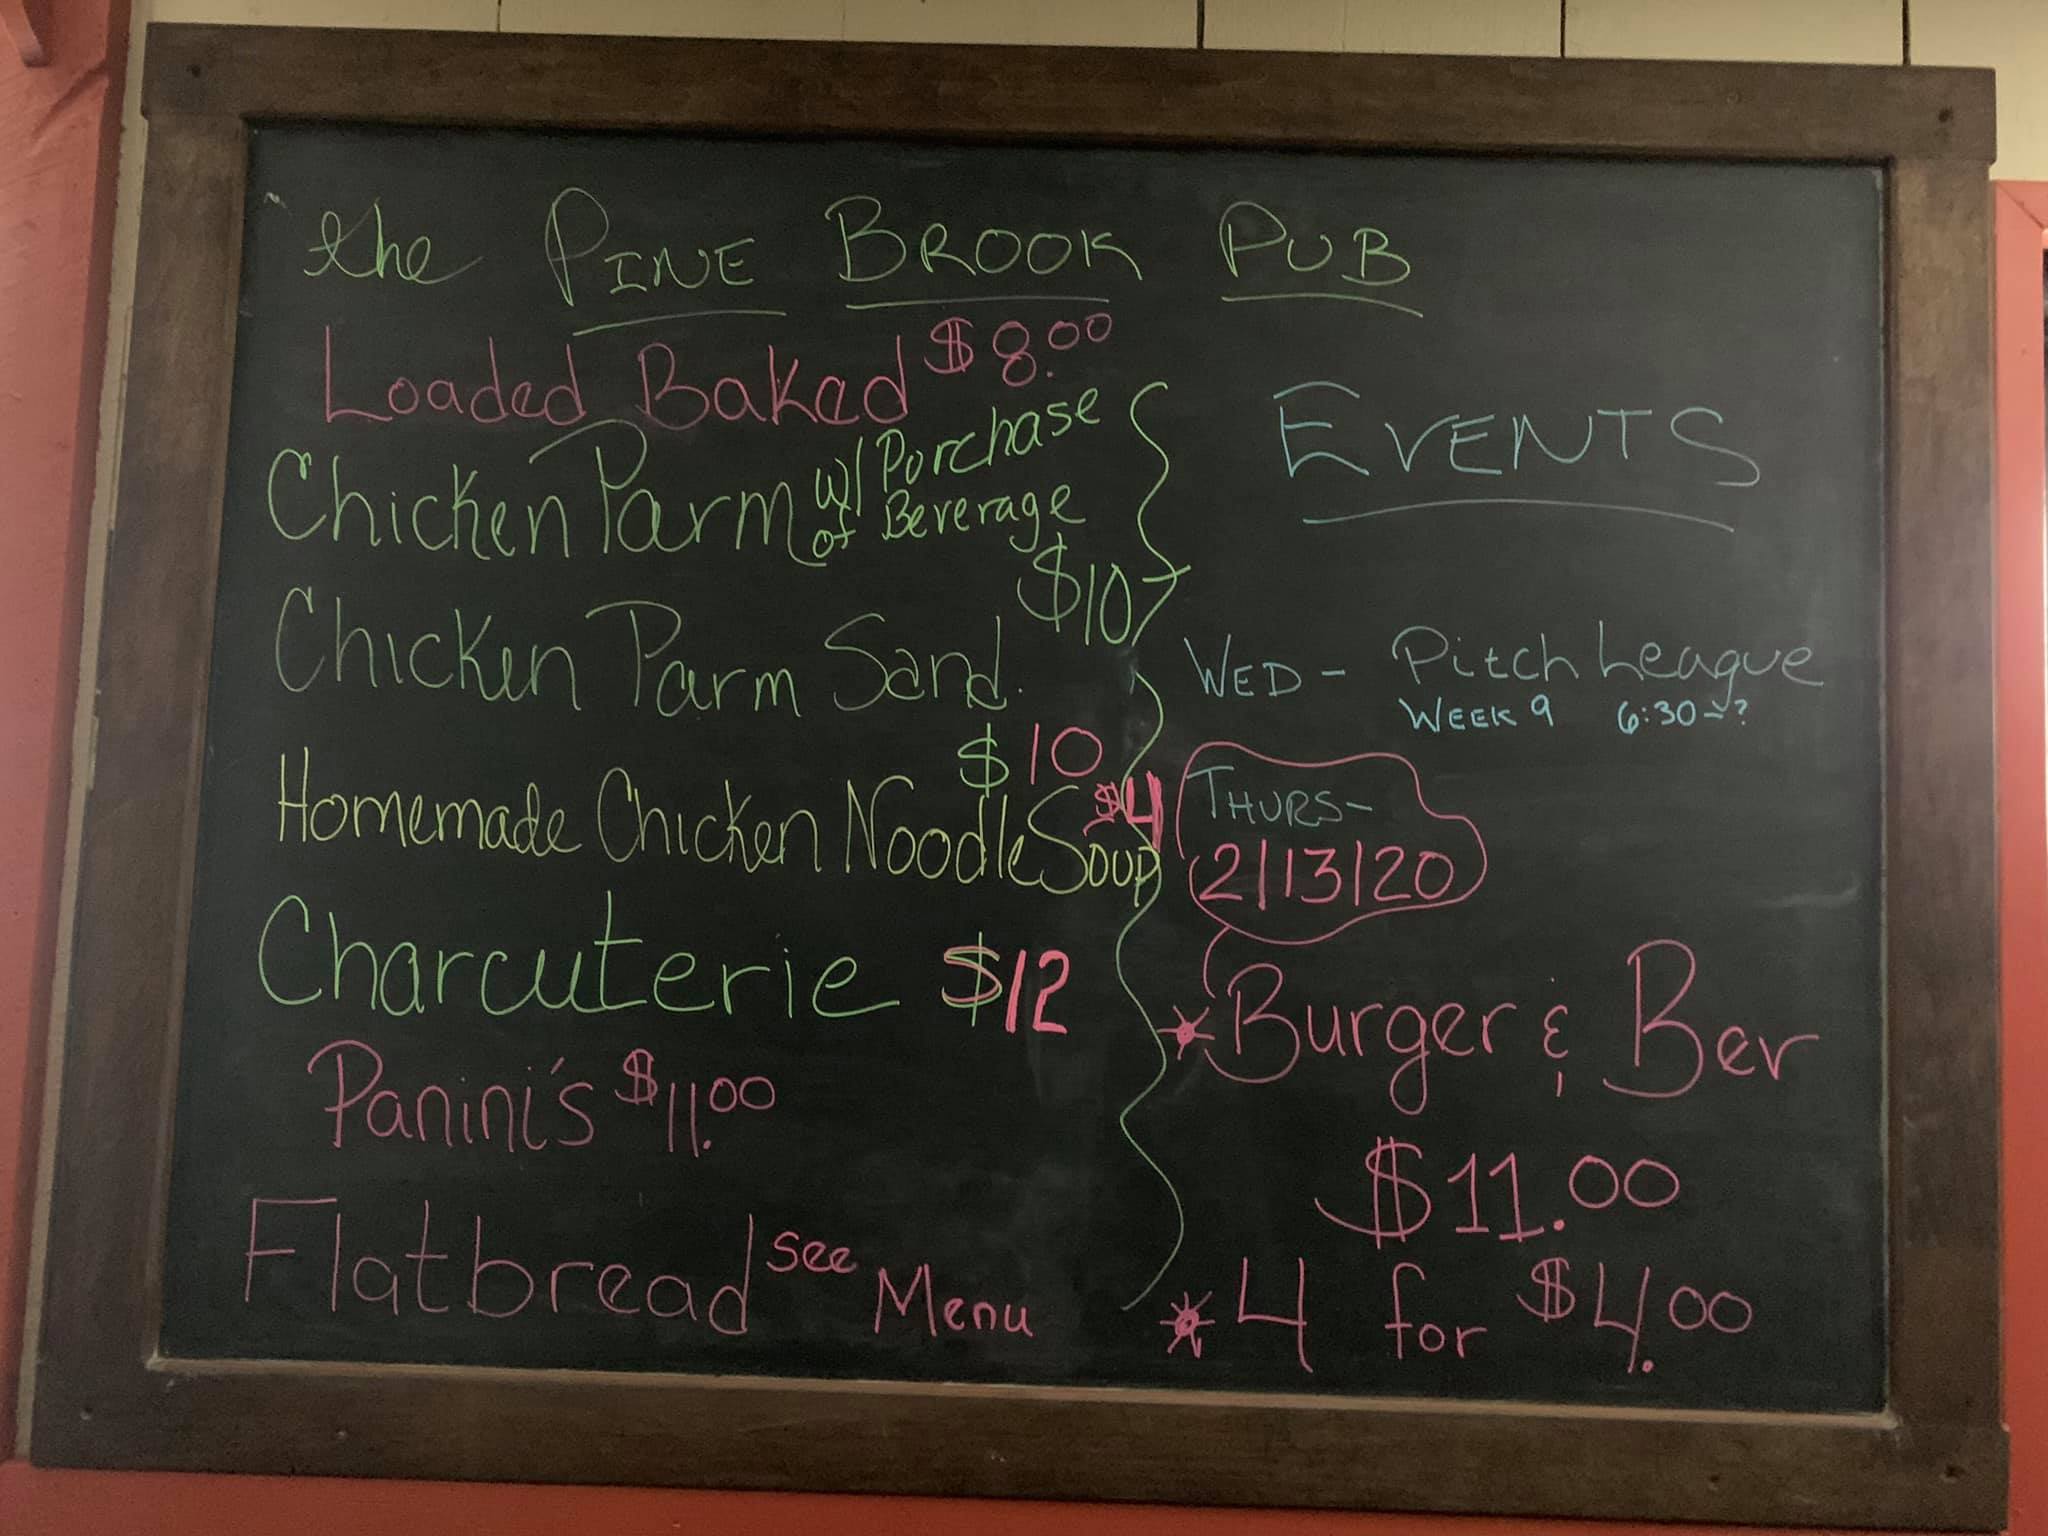 the PINE BROOK PUB
Loaded Baked $8.00
Chicken Parm w/ Purchase
of Beverage
$10
Chicken Parm Sand.
$10
Homemade Chicken Noodle Soup $4
Charcuterie $12
Panini's $11.00
Flatbread see Menu
EVENTS
WED - Pitch League
WEEK 9 6:30-?
THURS-
2/13/20
Burger & Ber
$11.00
4 for $4.00